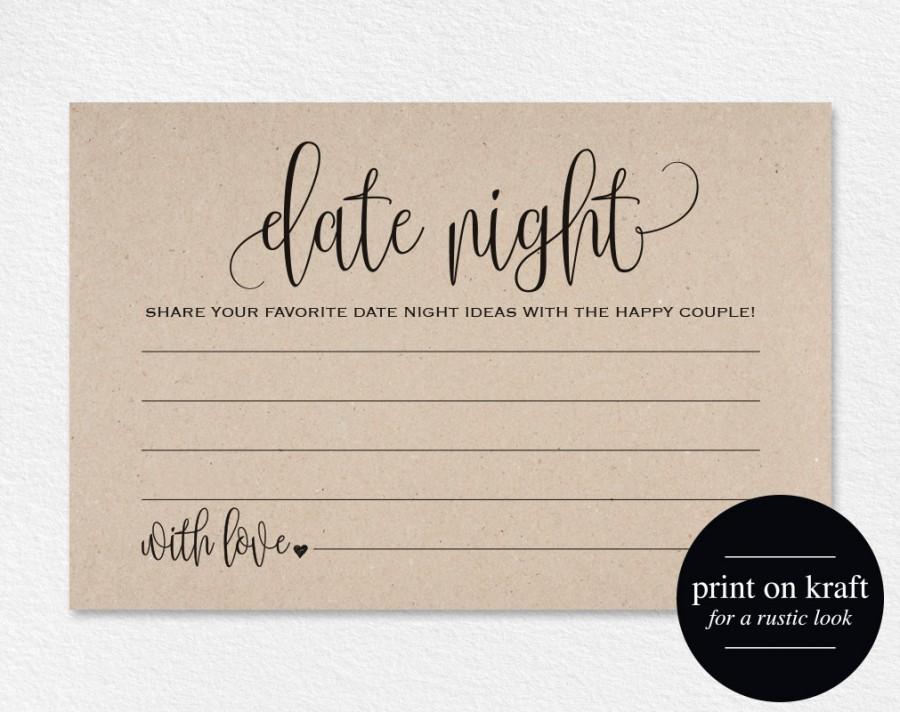 date night
SHARE YOUR FAVORITE DATE NIGHT IDEAS WITH THE HAPPY COUPLE!
with love
print on kraft
for a rustic look